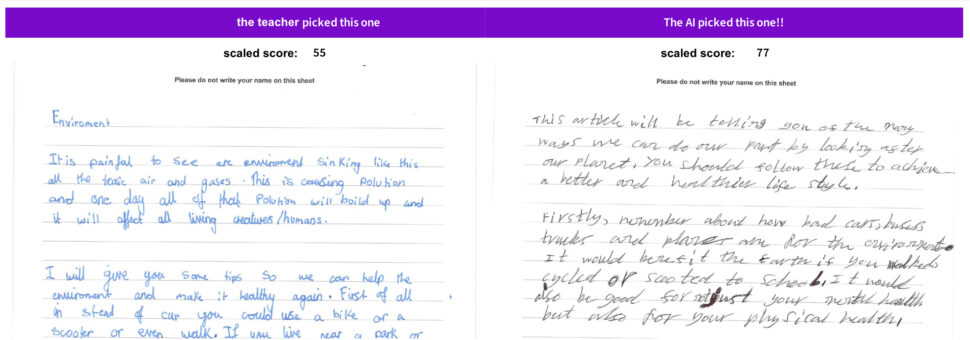 the teacher picked this one
The AI picked this one!!
scaled score: 55
scaled score: 77
Please do not write your name on this sheet
Enviroment
It is painful to see are enviroment sinking like this
all the toxic air and gases. This is causing polution
and one day all off that polution will build up and
it will affect all living creatures/humans.
I will give you some tips so we can help the
enviroment and make it healthy again. First of all
in stead of car you could use a bike or a
scooter or even walk. If you live near a park or
Please do not write your name on this sheet
This article will be telling you of the many
ways we can do our part by looking after
our planet, You should follow these to achieve
a better and healthier life style.
Firstly, remember about how bad cars, buses
trucks and planes are for the environment.
It would benefit the Earth if you walked
cycled or scooted to school, It would
also be good for not just your mental health
but also for your physical health,